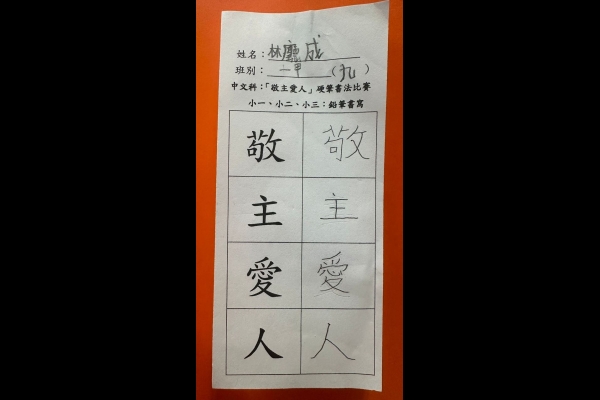 姓名：林廳成
班別：二甲 （九）
中文科：「敬主愛人」硬筆書法比賽
小一、小二、小三：鉛筆書寫
敬 敬
主 主
愛 愛
人 人